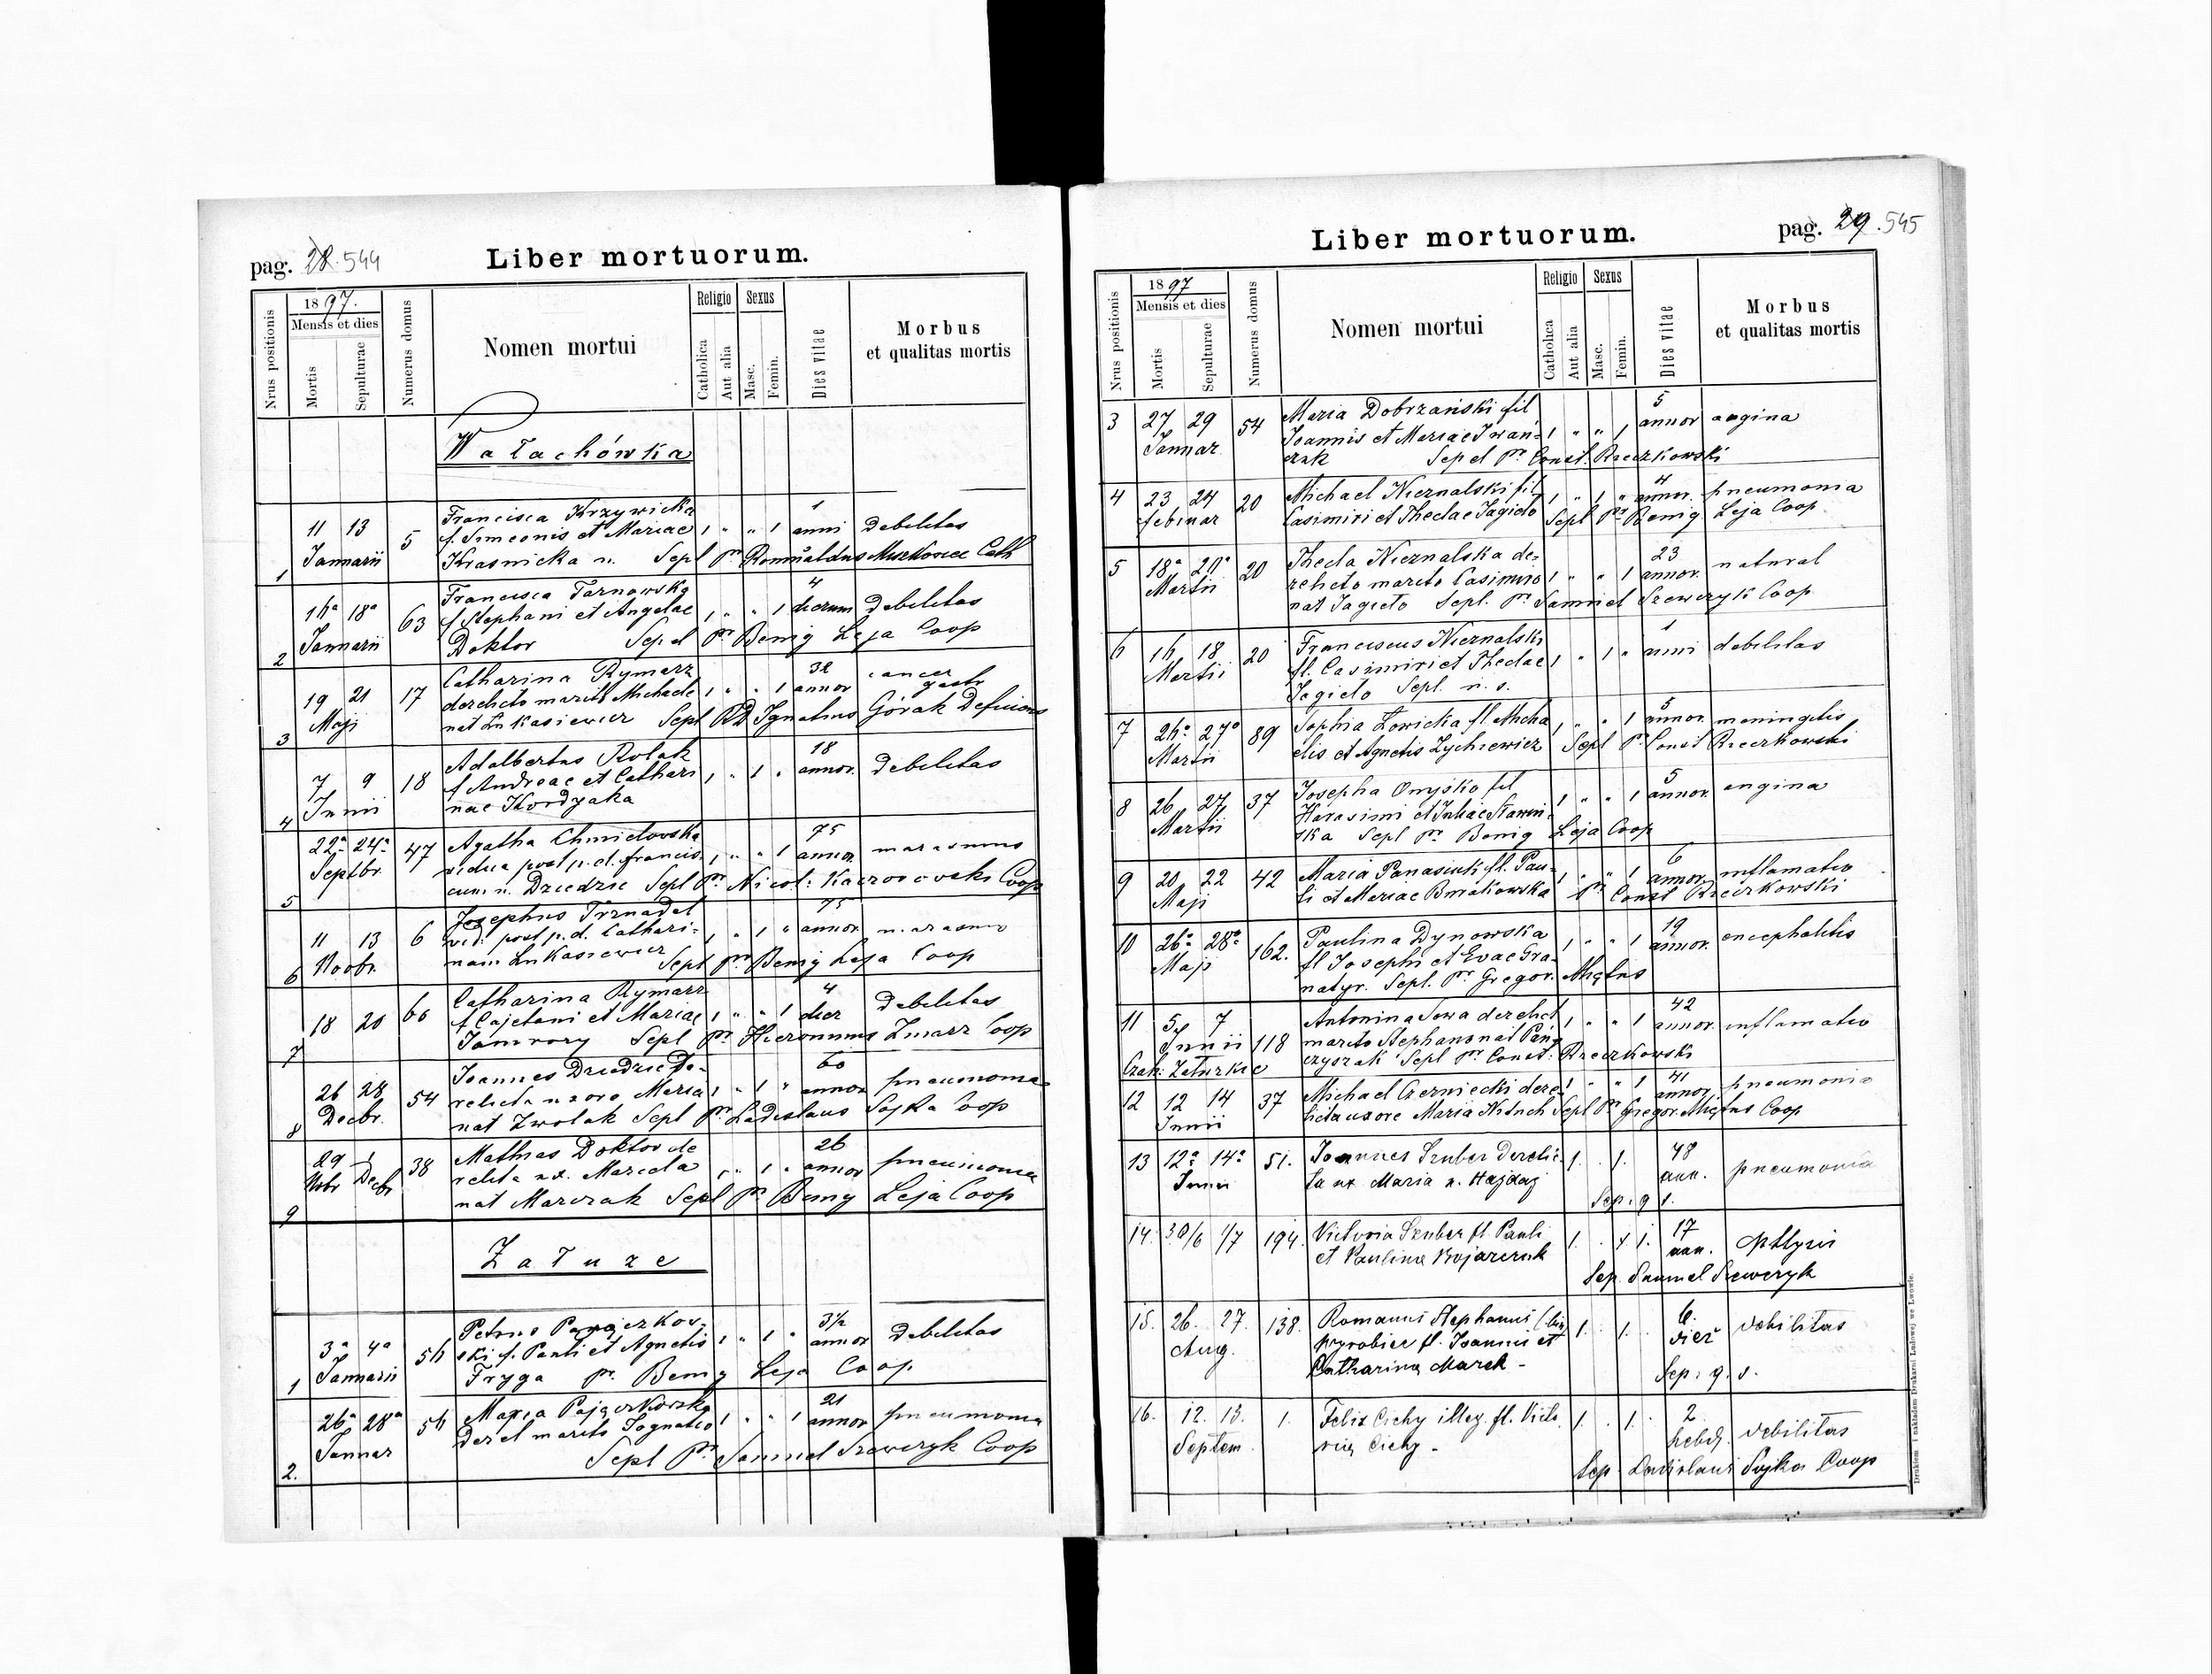 pag. 28. 544
Liber mortuorum.
Nrus positionis
1897.
Mensis et dies
Mortis
Sepulturae
Numerus domus
Nomen mortui
Religio
Catholica
Aut alia
Sexus
Masc.
Femin.
Dies vitae
Morbus
et qualitas mortis
Wałachówka
1 11 13 Januarii 5 Francisca Krzywicka 1 " " 1 1 anni debilitas
f. Simeonis et Mariae
Krasnicka n. Sepl pr Romualdus Cath
2 16a 18a Januarii 63 Francisca Tarnowska 1 " " 1 4 dierum debilitas
f Stephani et Angelae
Doktor Sepel pr Benig Leja Coop
3 19 21 Maji 17 Catharina Rymarz 1 " " 1 32 annor cancer gastr
derelicto marito Michaele
nat Łukasiewicz Sepl RD Ignatius Górak
4 7 9 Junii 18 Adalbertus Rolak 1 " 1 " 18 annor. debilitas
f Andreae et Cathari
nae Kordyaka
5 22a 24a Septbr. 47 Agatha Chmielowska 1 " " 1 75 annor marasmus
vidua post p. d. Francis
cum n. Dziedzic Sepl pr Nicol: Coop
6 11 13 Novbr. 6 Josephus Trznadel 1 " 1 " 75 annor marasmus
vid. post p. d. Cathari-
nam Łukasiewicz
Sepl pr Benig Leja Coop
7 18 20 66 Catharina Rymarz 1 " " 1 4 dier debilitas
f Cajetani et Mariae
Jaworory Sepl pr Hieronimus Zmarz Coop
8 26 28 Decbr. 54 Joannes Dziedzic de- 1 " 1 " 60 annor pneumonia
relicta uxore Maria
nat Zwolak Sepl pr Ladislaus Sojka Coop
9 29 Nbr 1 Decbr 38 Mathias Doktor de 1 " 1 " 26 annor pneumonia
relicta ux. Maria
nat Marczak Sepl pr Benig Leja Coop
Załuże
1 3a 4a Januarii 56 Petrus Pajączkow- 1 " 1 " 3½ annor debilitas
ski f. Pauli et Agnetis
Fryga pr. Benig Leja Coop.
2. 26a 28a Januar 56 Maria Pajączkowska 1 " " 1 21 annor pneumonia
derel marito Ignatio
Sepl pr Samuel Szewczyk Coop
pag. 29. 545
Liber mortuorum.
Nrus positionis
1897
Mensis et dies
Mortis
Sepulturae
Numerus domus
Nomen mortui
Religio
Catholica
Aut alia
Sexus
Masc.
Femin.
Dies vitae
Morbus
et qualitas mortis
3 27 29 Januar 54 Maria Dobrzański fil 1 " " 1 5 annor angina
Joannis et Mariae Iwań-
czuk Sepel pr Const. Rzeczkowski
4 23 24 februar 20 Michael Nieznalski fil 1 " 1 " 4 annor. pneumonia
Casimiri et Theclae Jagieło Sepl pr Benig Leja Coop.
5 18a 20a Martii 20 Thecla Nieznalska de- 1 " " 1 23 annor. natural
relicto marito Casimiro
nat Jagieło Sepl. pr Samuel Szewczyk Coop
6 16 18 Martii 20 Franciscus Nieznalski 1 " 1 " 1 anni debilitas
fl. Casimiri et Theclae
Jagieło Sepl. n. s.
7 26a 27a Martii 89 Sophia Łowicka fl. Micha 1 " " 1 5 annor. meningitis
elis et Agnetis Zychiewicz Sepl pr Const Rzeczkowski
8 26 27 Martii 37 Josepha Onyśko fil 1 " " 1 5 annor. angina
Harasimi et Juliae
ska Sepl pr Benig Leja Coop
9 20 22 Maji 42 Maria Panasiuk fl. Pau- 1 " " 1 6 annor. inflamatio
li et Mariae Bmiakowska pr Const Rzeczkowski
10 26a 28a Maji 162. Paulina Dynowska 1 " " 1 19 annor. encephalitis
fl Josephi et Evae Gra-
natyr. Sepl. pr Gregor. Miętus
11 5 7 Junii 118 Antonina Sowa derelict 1 " " 1 42 annor. inflamatio
marito Stephano nat
Sepl pr Const: Rzeczkowski
12 12 14 Junii 37 Michael Czerniecki dere- 1 " " 1 41 annor. pneumonia
licta uxore Maria Sepl pr Gregor. Miętus Coop
13 12a 14a Junii 51. Joannes Szuber Derelic- 1. . 1. 48 ann. pneumonia
ta ux Maria n. Hajdaj
Sep. q s.
14. 30/6 1/7 194. Victoria Szuber fl. Pauli 1. . 1. 17 ann. phtysis
et Paulina Bojarczuk
Sep. Samuel Szewczyk
15. 26. 27. Aug. 138. Romanus Stephanus
fl. Joannis et 1. . 1. 6. dier debilitas
Catharina Marek -
Sep. q. s.
16. 12. 13. Septem. 1. Felix Cichy illeg. fl. Victo 1. . 1. 2 hebd. debilitas
riæ Cichy -
Sep Ladislaus Sojka Coop
Drukiem i nakładem Drukarni Ludowej we Lwowie.